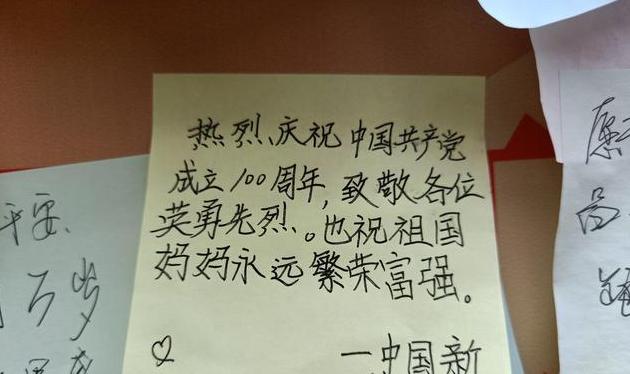 热烈庆祝中国共产党
成立100周年,致敬各位
英勇先烈。也祝祖国
妈妈永远繁荣富强。
一中国新
平安
万岁
愿